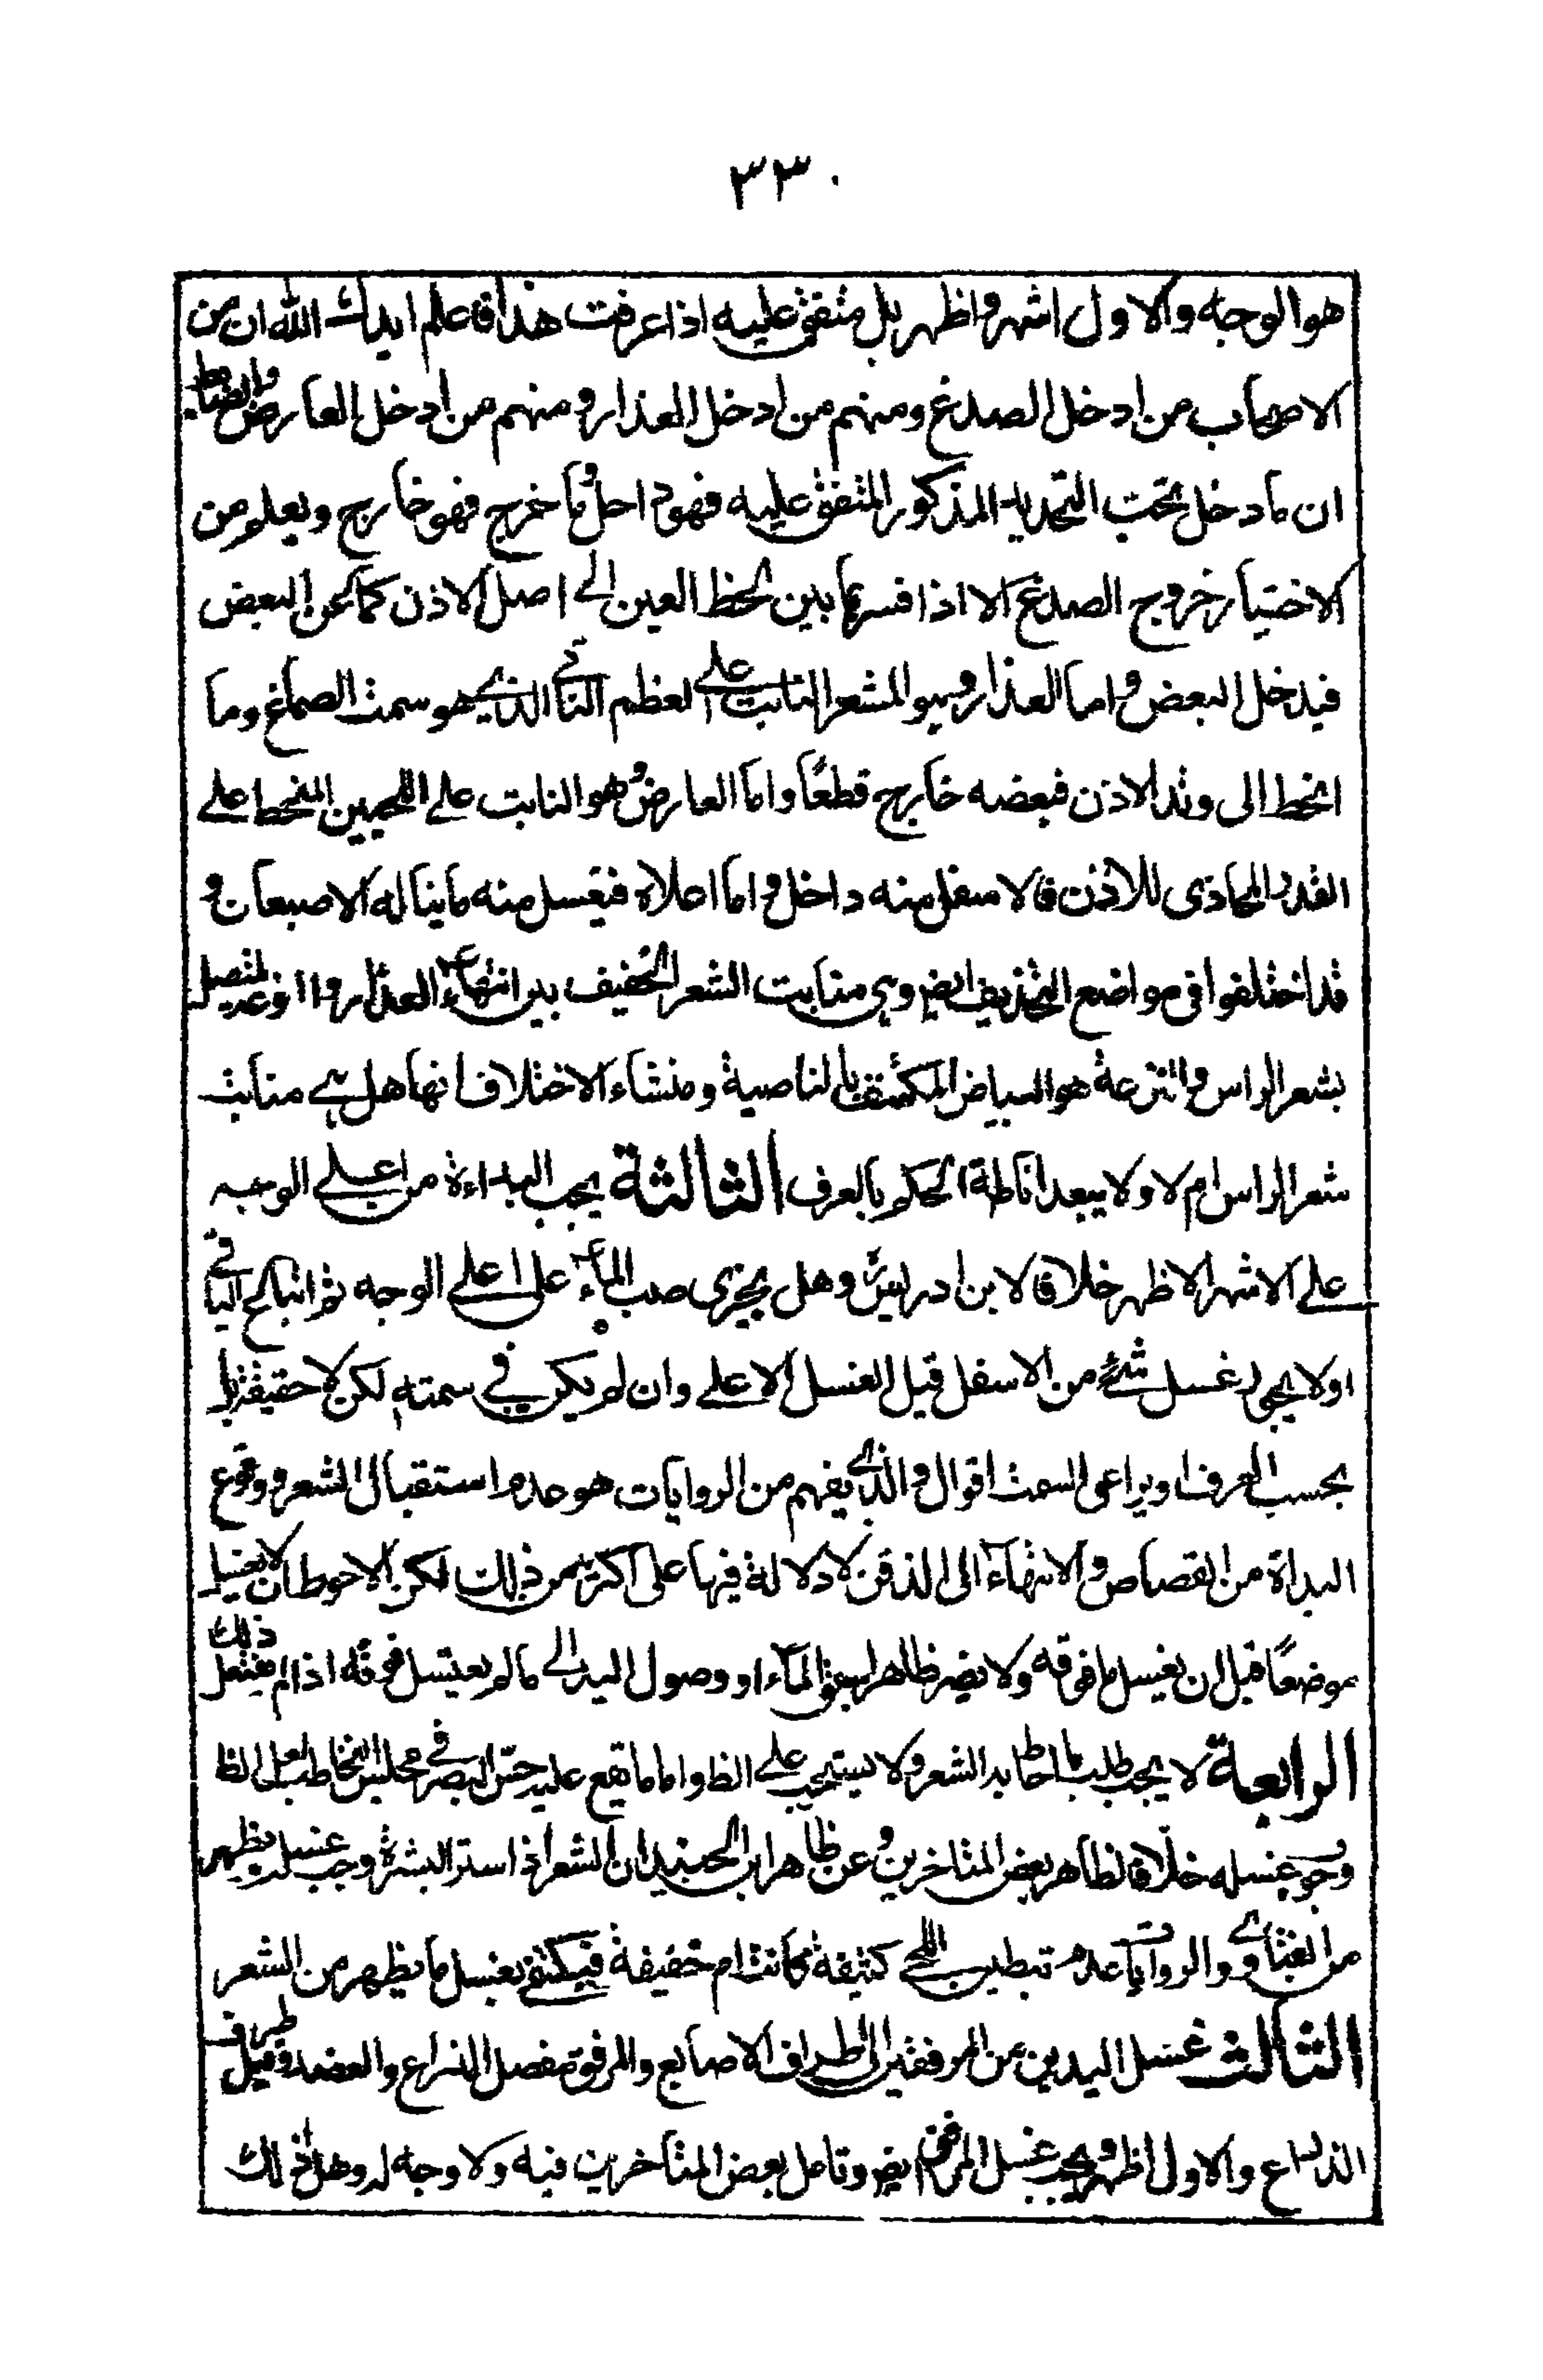 ٣٣٠
هو الوجه والاول اشهر واظهر بل متفق عليه اذا عرفت هذا فاعلم ايدك الله ان من
الاصحاب من ادخل الصدغ ومنهم من ادخل العذار ومنهم من ادخل العارض والضابط
ان ما دخل تحت التحديد المذكور المتفق عليه فهو داخل وما خرج فهو خارج ويعلم من
الاختيار خروج الصدغ الا اذا فسر بما بين لحظ العين الى اصل الاذن كما عن البعض
فيدخل البعض واما العذار وهو الشعر النابت على العظم الناتى الذي هو سمت الصماغ وما
انحط الى وتد الاذن فبعضه خارج قطعًا واما العارض وهو النابت على اللحيين المنحط على
القدر المحاذى للاذن فالاسفل منه داخل واما اعلاه فيغسل منه ما يناله الاصبعان و
قد اختلفوا فى مواضع التحذيف ايض وهى منابت الشعر الخفيف بين انتهاء العذار و المتصل
بشعر الراس والنزعة هو البياض المكتنف بالناصية ومنشاء الاختلاف انها هل هى منابت
شعر الراس ام لا ولا يبعد اناطة الحكم بالعرف الثالثة يجب البداءة من اعلى الوجه
على الاشهر الاظهر خلافا لابن ادريس وهل يجزى صب الماء على اعلى الوجه ثم اتباع الباقي
او لا يجوز غسل شئ من الاسفل قبل الغسل الاعلى وان لم يكن في سمته لكن لا حقيقة بل
بحسب العرف او يراعى السمت اقوال والذى يفهم من الروايات هو عدم استقبال الشعر ووقوع
البداة من القصاص والانتهاء الى الذقن لا دلالة فيها على اكثر من ذلك لكن الاحوط ان لا يغسل
موضعًا قبل ان يغسل ما فوقه ولا يضر ظاهرا سبق الماء او وصول اليد الى ما لم يغتسل فوقه اذا لم يفتعل ذلك
الرابعة لا يجب طلب ما احاط به الشعر ولا يستحب على الظ واما ما تقع عليه حس البصر في مجلس التخاطب فعلى الظ
وجوب غسله خلافا لظاهر بعض المتاخرين وعن ظاهر ابن الجنيد ان الشعر اذا ستر البشرة وجب غسل يظهر
من الفتاوى والروايات عدم تبطين اللحى كثيفة كانت ام خفيفة فيكتفى بغسل ما يظهر من الشعر
الثالث غسل اليدين من المرفقين الى اطراف الاصابع والمرفق مفصل الذراع والعضد وقيل طرف
الذراع والاول اظهر ويجب غسل المرفق ايض وتامل بعض المتأخرين فيه ولا وجه له وهل ذلك